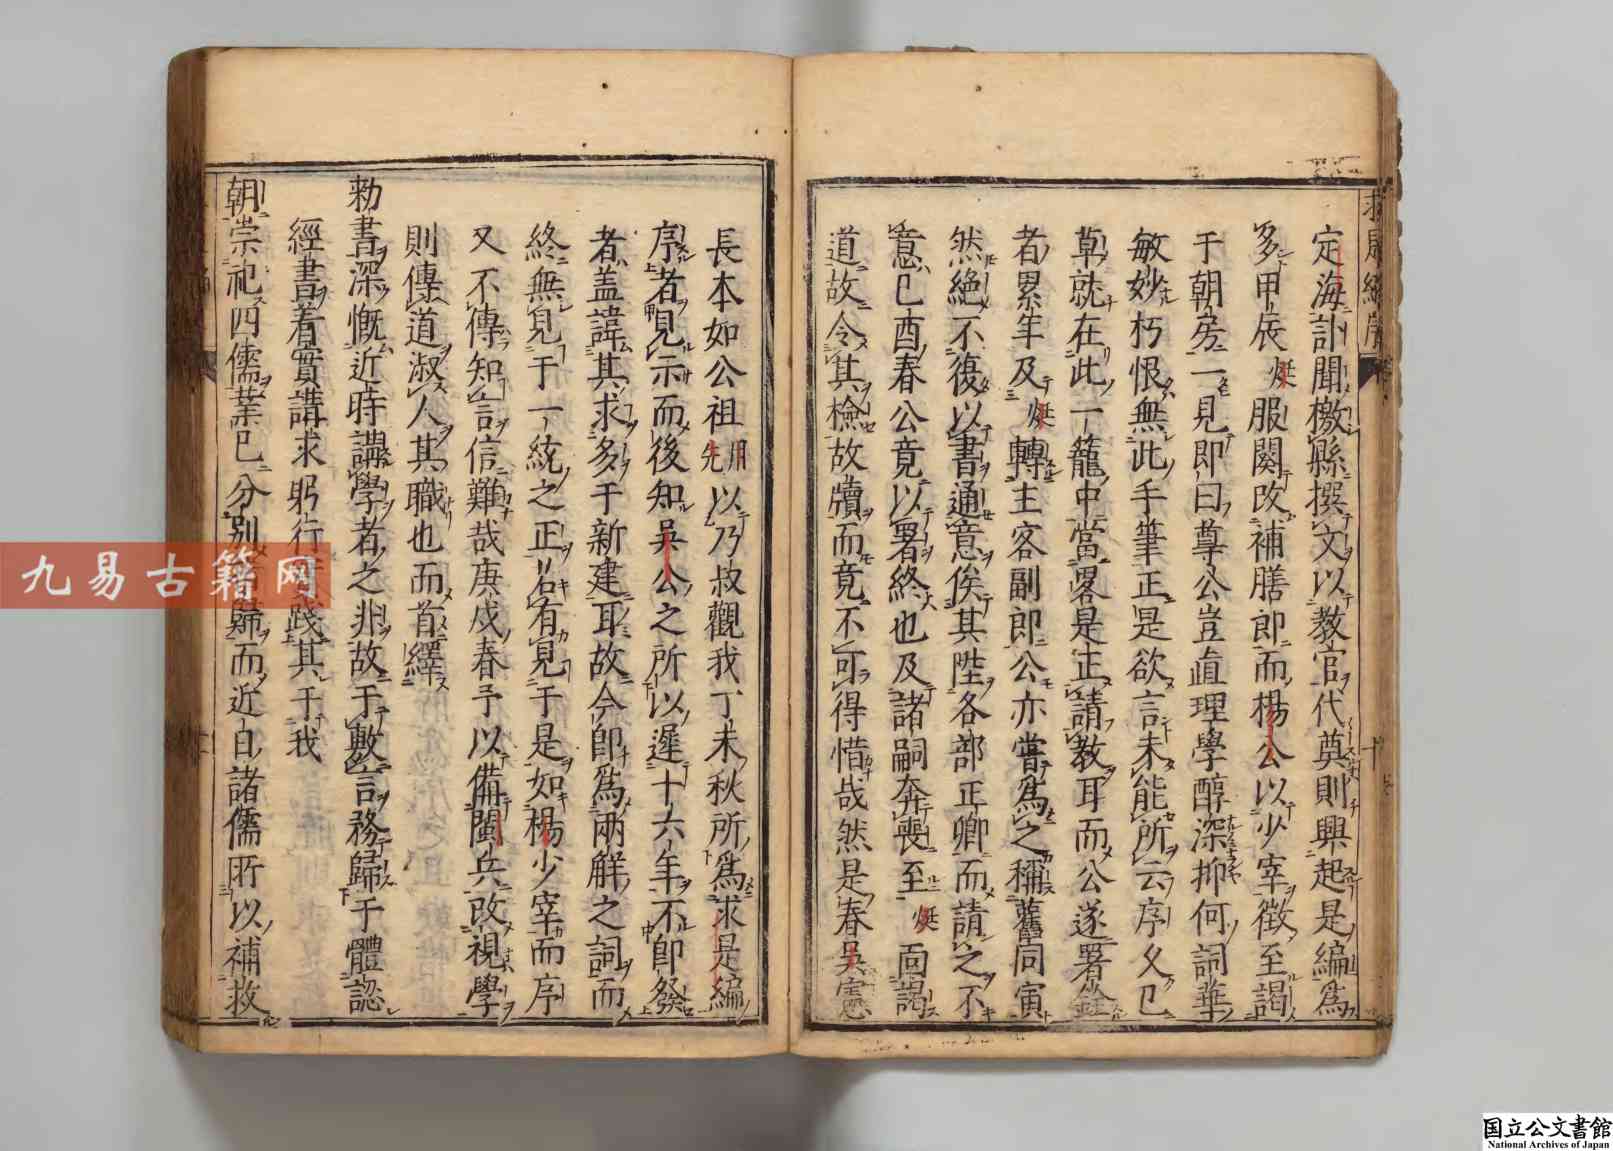 定海訃聞檄縣撰文以教官代奠則興起是編爲
多甲辰烶服闋改補膳郎而楊公以少宰徵至謁
于朝房一見即曰尊公豈直理學醇深抑何詞華
敏妙朽恨無此手筆正是欲言未能所云序文已
草就在此一籠中當畧是正請教耳而公遂署銓
者累年及烶轉主客副郎公亦嘗爲之稱舊同寅
然絶不復以書通意俟其陞各部正卿而請之不
意己酉春公竟以署終也及諸嗣奔喪至烶面謁
道故令其檢故牘而竟不可得惜哉然是春吳憲
長本如公祖用先以乃叔觀我丁未秋所爲求是編
序者見示而後知吳公之所以遲十六年不即發
者盖諱其求多于新建耳故今即爲兩解之詞而
終無見于一統之正若有見于是如楊少宰而序
又不傳知言信難哉庚戌春予以備閩兵改視學
則傳道淑人其職也而首繹
勑書深慨近時講學者之非故于敷言務歸于體認
經書着實講求躬行踐其于我
朝崇祀四儒業已分別歸而近日諸儒所以補救
九易古籍网
国立公文書館
National Archives of Japan